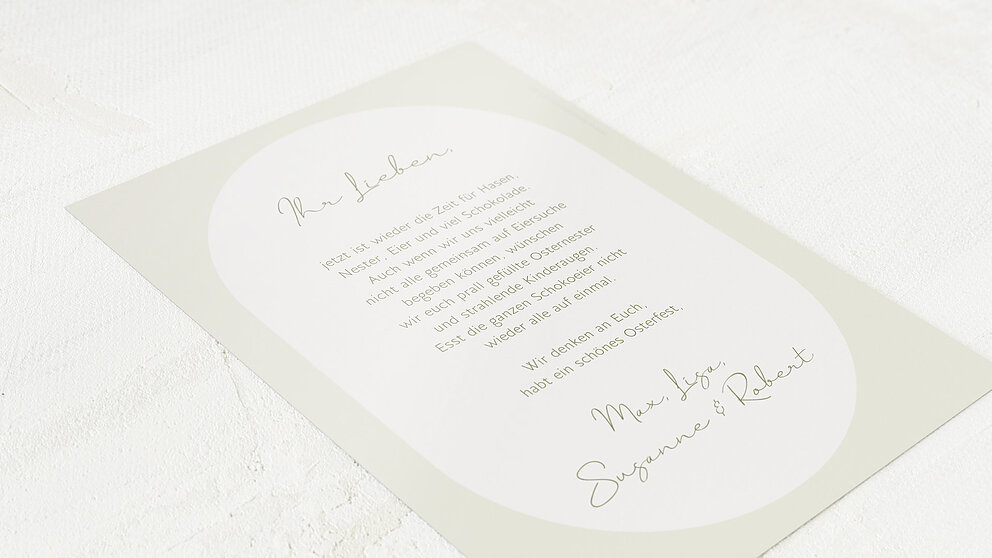 Ihr Lieben,
jetzt ist wieder die Zeit für Hasen,
Nester, Eier und viel Schokolade.
Auch wenn wir uns vielleicht
nicht alle gemeinsam auf Eiersuche
begeben können, wünschen
wir euch prall gefüllte Osternester
und strahlende Kinderaugen.
Esst die ganzen Schokoeier nicht
wieder alle auf einmal.
Wir denken an Euch,
habt ein schönes Osterfest,
Max, Lisa,
Susanne & Robert